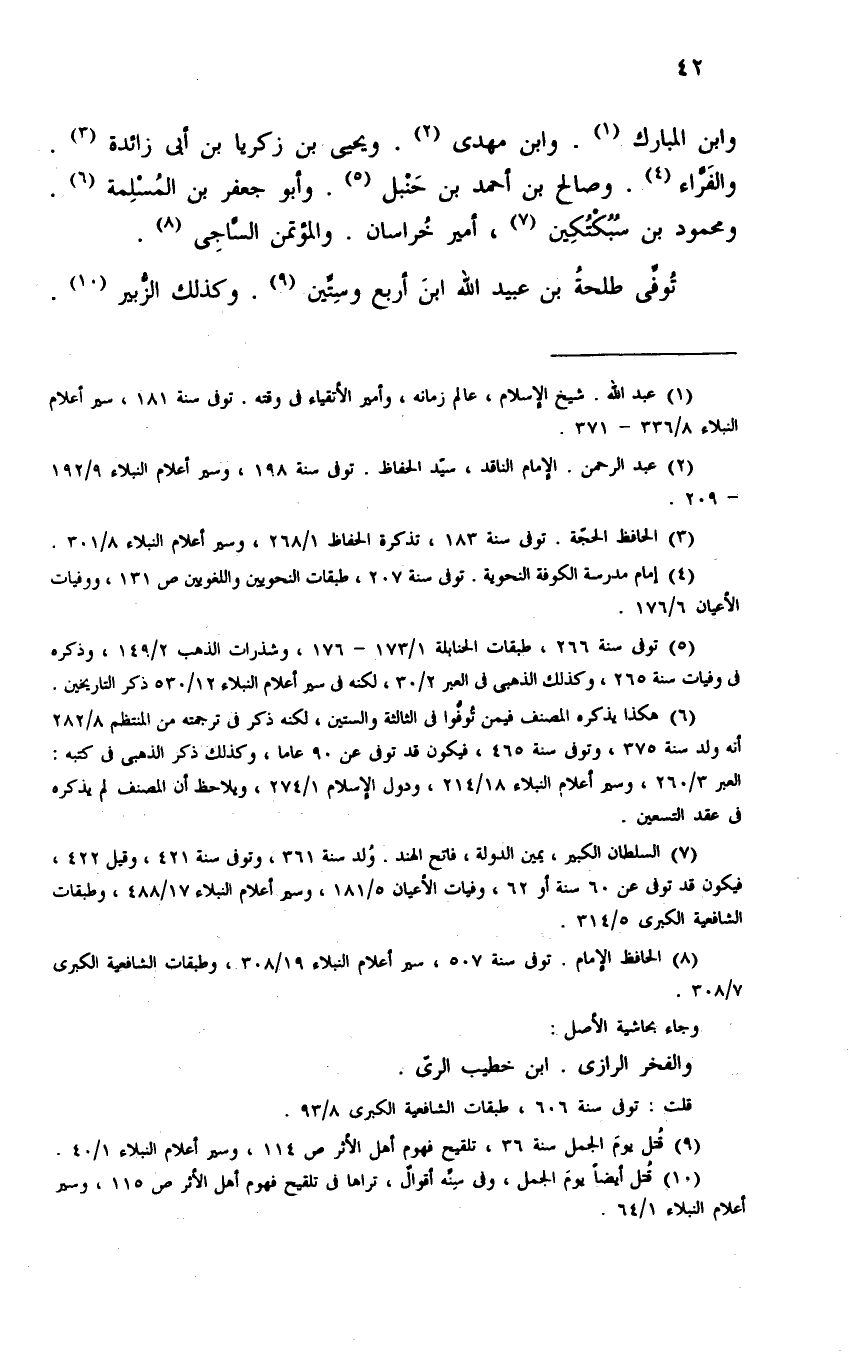 ٤٢
وابن المبارك (١) . وابن مهدى (٢) . ويحيى بن زكريا بن أبى زائدة (٣) .
والفَرَّاء (٤) . وصالح بن أحمد بن حَنْبل (٥) . وأبو جعفر بن المُسْلِمة (٦) .
ومحمود بن سُبُكْتُكِين (٧) ، أمير خُراسان . والمؤتمن السَّاجِى (٨) .
تُوفِّى طلحةُ بن عبيد الله ابنَ أربع وسِتِّين (٩) . وكذلك الزُّبير (١٠) .
(١) عبد الله . شيخ الإسلام ، عالم زمانه ، وأمير الأتقياء فى وقته . توفى سنة ١٨١ ، سير أعلام
النبلاء ٣٣٦/٨ – ٣٧١ .
(٢) عبد الرحمن . الإمام الناقد ، سيّد الحفاظ . توفى سنة ١٩٨ ، وسير أعلام النبلاء ١٩٢/٩
– ٢٠٩ .
(٣) الحافظ الحجّة . توفى سنة ١٨٣ ، تذكرة الحفاظ ٢٦٨/١ ، وسير أعلام النبلاء ٣٠١/٨ .
(٤) إمام مدرسة الكوفة النحوية . توفى سنة ٢٠٧ ، طبقات النحويين واللغويين ص ١٣١ ، ووفيات
الأعيان ١٧٦/٦ .
(٥) توفى سنة ٢٦٦ ، طبقات الحنابلة ١٧٣/١ – ١٧٦ ، وشذرات الذهب ١٤٩/٢ ، وذكره
فى وفيات سنة ٢٦٥ ، وكذلك الذهبى فى العبر ٣٠/٢ ، لكنه فى سير أعلام النبلاء ٥٣٠/١٢ ذكر التاريخين .
(٦) هكذا يذكره المصنف فيمن تُوفُّوا فى الثالثة والستين ، لكنه ذكر فى ترجمته من المنتظم ٢٨٢/٨
أنه ولد سنة ٣٧٥ ، وتوفى سنة ٤٦٥ ، فيكون قد توفى عن ٩٠ عاما ، وكذلك ذكر الذهبى فى كتبه :
العبر ٢٦٠/٣ ، وسير أعلام النبلاء ٢١٤/١٨ ، ودول الإسلام ٢٧٤/١ ، ويلاحظ أن المصنف لم يذكره
فى عقد التسعين .
(٧) السلطان الكبير ، يمين الدولة ، فاتح الهند . وُلد سنة ٣٦١ ، وتوفى سنة ٤٢١ ، وقيل ٤٢٢ ،
فيكون قد توفى عن ٦٠ سنة أو ٦٢ ، وفيات الأعيان ١٨١/٥ ، وسير أعلام النبلاء ٤٨٨/١٧ ، وطبقات
الشافعية الكبرى ٣١٤/٥ .
(٨) الحافظ الإمام . توفى سنة ٥٠٧ ، سير أعلام النبلاء ٣٠٨/١٩ ، وطبقات الشافعية الكبرى
٣٠٨/٧ .
وجاء بحاشية الأصل :
والفخر الرازى . ابن خطيب الرىّ .
قلت : توفى سنة ٦٠٦ ، طبقات الشافعية الكبرى ٩٣/٨ .
(٩) قُتل يومَ الجمل سنة ٣٦ ، تلقيح فهوم أهل الأثر ص ١١٤ ، وسير أعلام النبلاء ٤٠/١ .
(١٠) قُتل أيضاً يومَ الجمل ، وفى سِنِّه أقوالٌ ، تراها فى تلقيح فهوم أهل الأثر ص ١١٥ ، وسير
أعلام النبلاء ٦٤/١ .